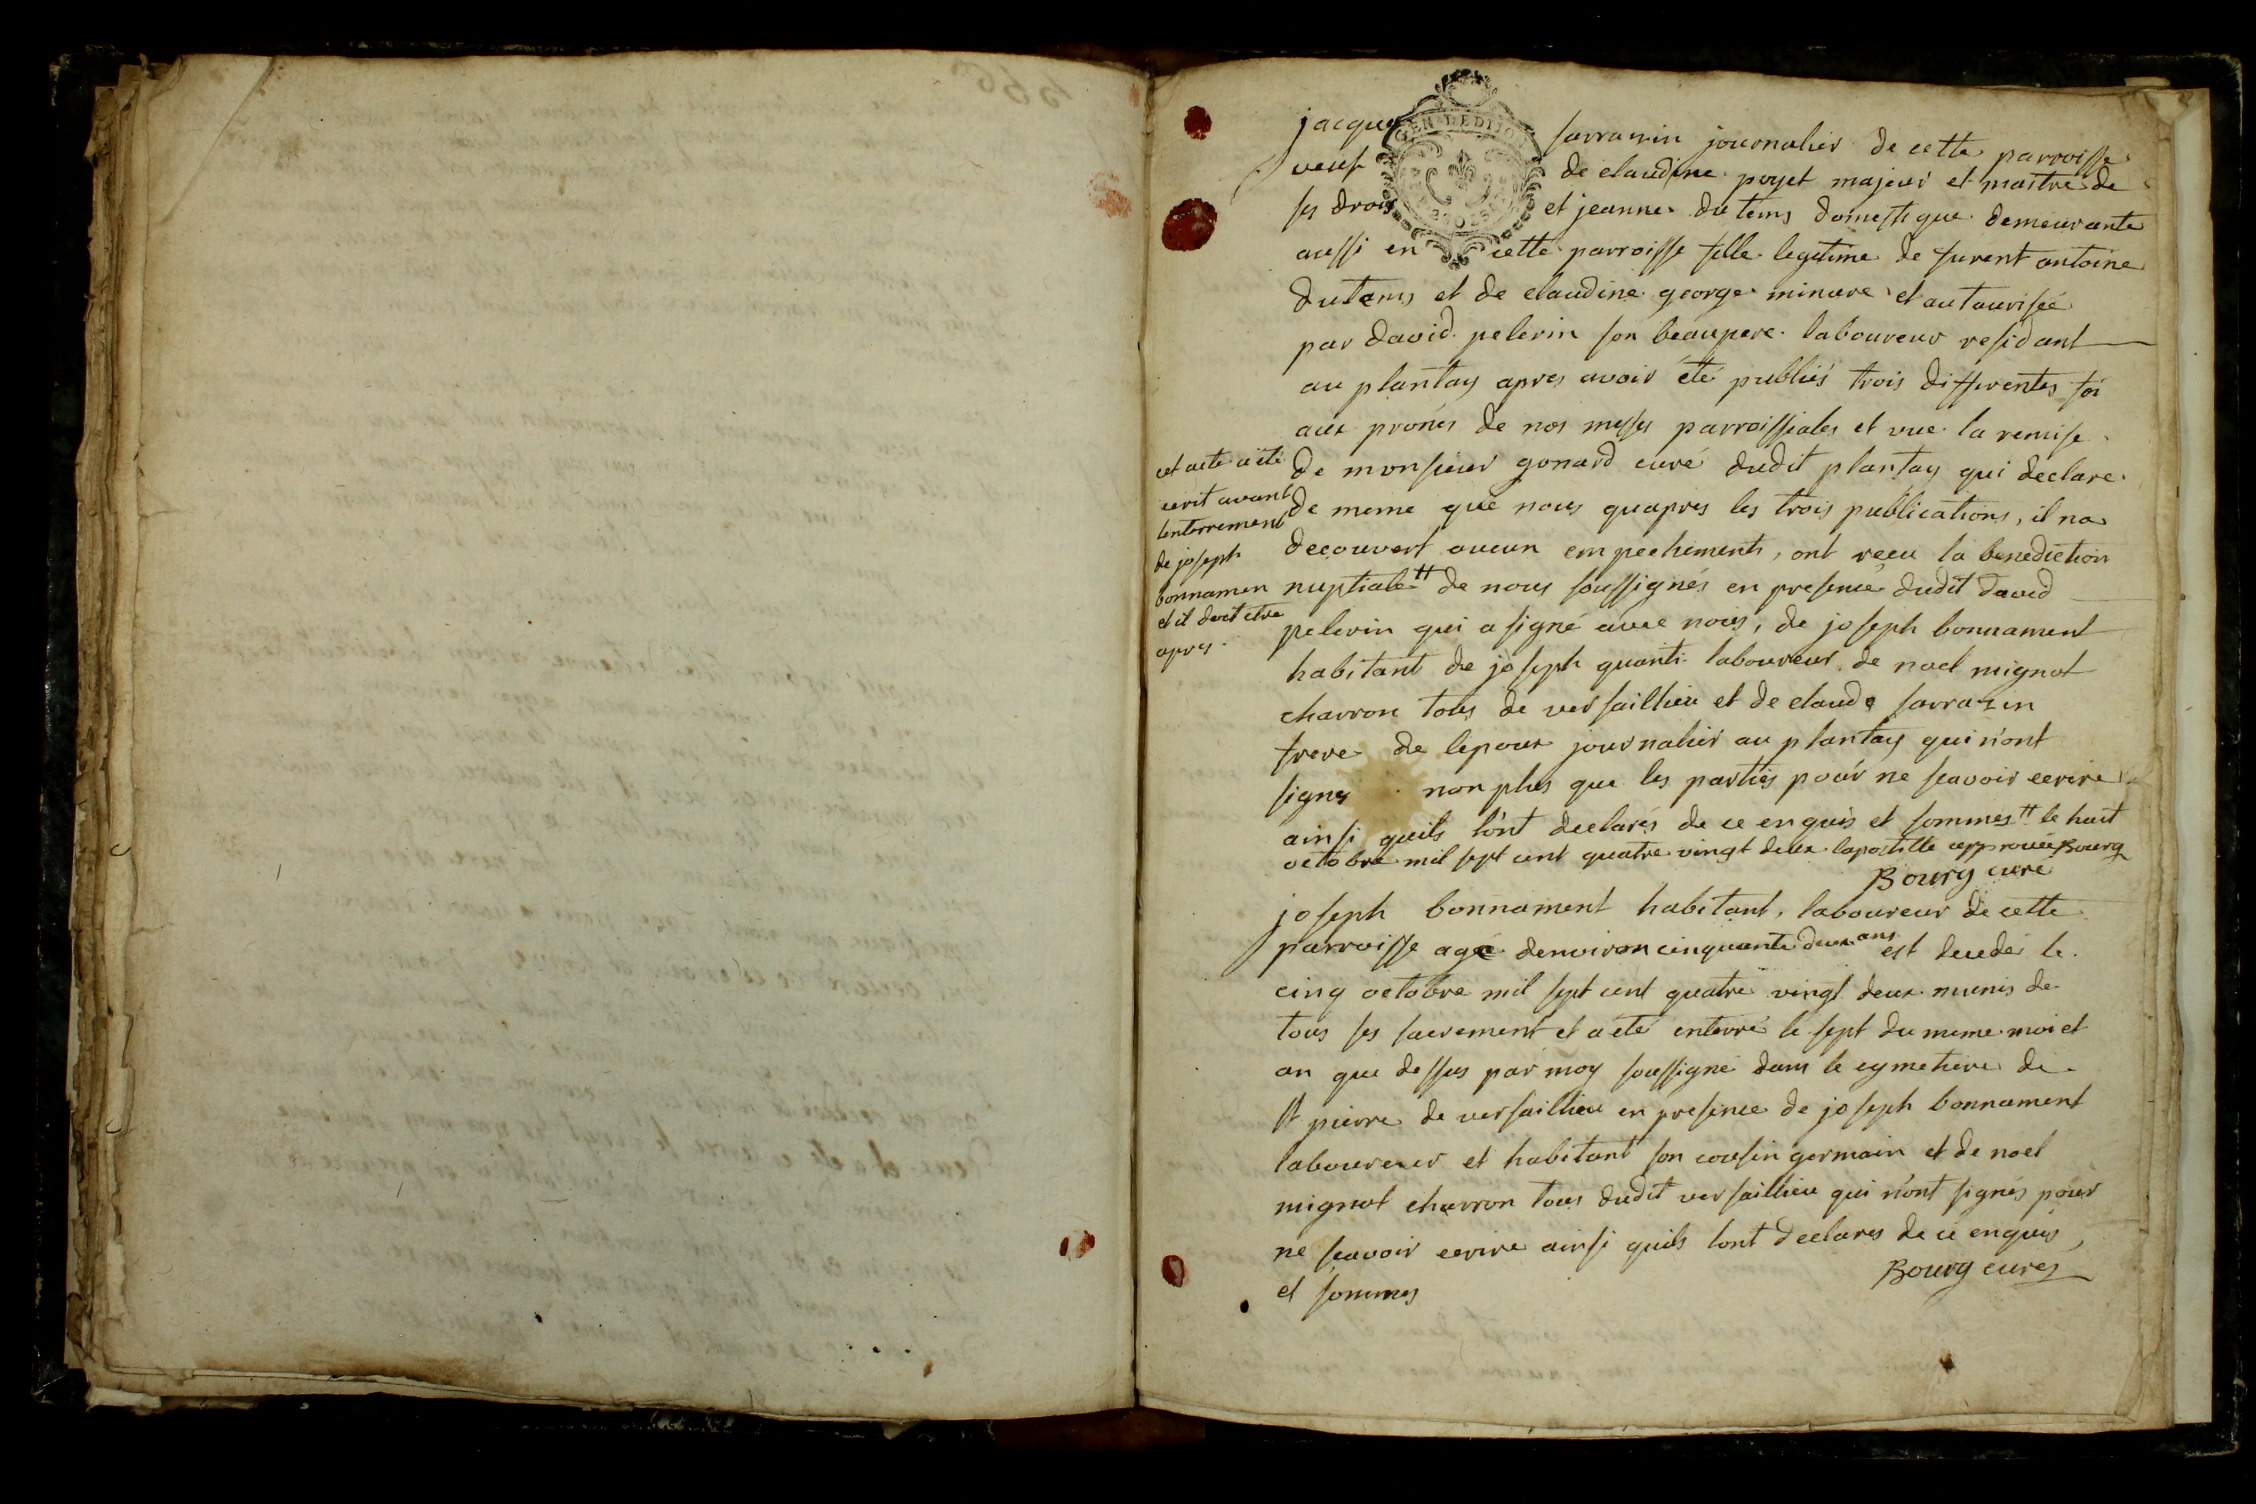 jacques sarrasin journalier de cette parroisse
veuf de claudine poyet majeur et maitre de
ses drois et jeanne du tems domestique demeurante
aussi en cette parroisse fille legitime de furent antoine
Dutems et de claudine george mineure et autaurisée
par david pelerin son beaupere laboureur residant
au plantay apres avoir été publiés trois differentes foi
aux prônes de nos messes parroissiales et vue la remise
de monsieur gonard curé dudit plantay qui declare
de meme que nous quapres les trois publications, il na
decouvert aucun empechement, ont recu la benediction
nuptiale # de nous soussignés en presence dudit david
pelerin qui a signé avec nous, de joseph bonnament
habitant de joseph quanti laboureur de noel mignot
charron tous de versaillieu et de claude sarrazin
frere de lepoux journalier au plantay qui n'ont
signes non plus que les parties pour ne scavoir ecrire
ainsi quils lont declarés de ce enquis et sommes # le huit
octobre mil sept cent quatre vingt deux lapostille approuée Bourg
Bourg curé
cet acte a eté
ecrit avant
lenterrement
de joseph
bonnamen
et il doit etre
apres.
joseph bonnament habitant, laboureur de cette
parroisse agé denviron cinquante deux ans est decedé le
cinq octobre mil sept cent quatre vingt deux munis de
tous ses sacrement et a eté enterré le sept du meme moi et
an que dessus par moy soussigné dans le cymetiere de
st pierre de versaillieu en presence de joseph bonnament
laboureur et habitant son cousin germain et de noel
mignot charron tous dudit versaillieu qui n'ont signés pour
ne scavoir ecrire ainsi quils lont declares de ce enquis
et sommes
Bourg curé
GEN DE DIJON